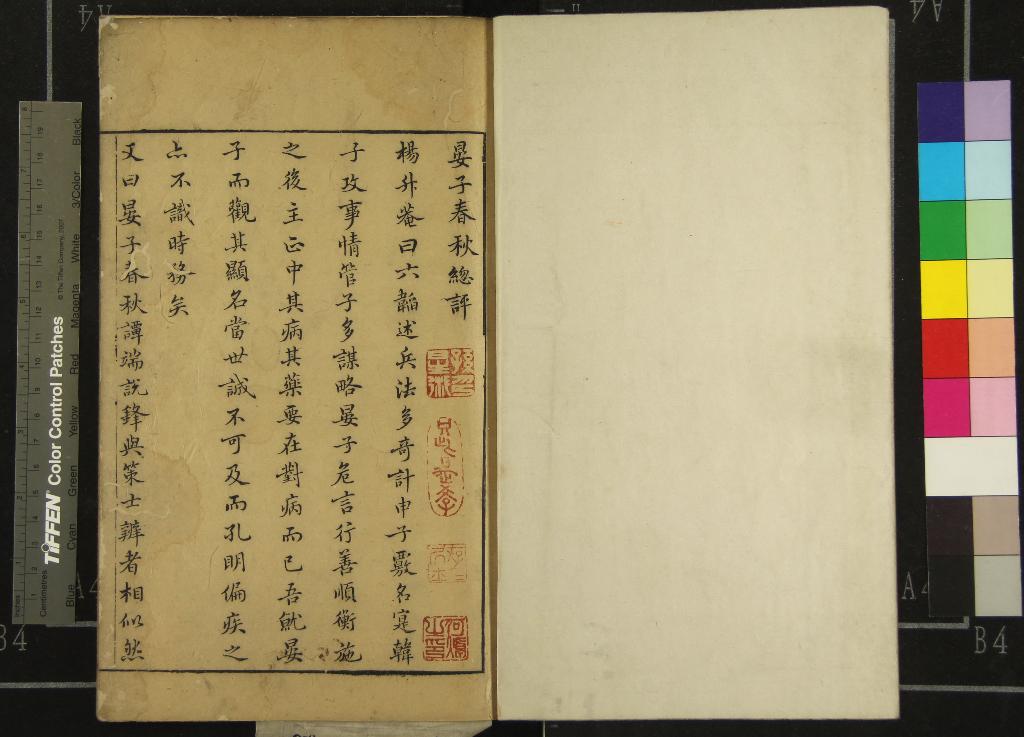 晏子春秋總評
楊升菴曰六韜述兵法多奇計申子覈名寔韓
子攻事情管子多謀略晏子危言行善順衡施
之後主正中其病其藥要在對病而已吾就晏
子而觀其顯名當世誠不可及而孔明偏疾之
亦不識時務矣
又曰晏子春秋譚端說鋒與策士辨者相似然
TIFFEN Color Control Patches
© The Tiffen Company, 2007
Centimetres
Inches
Blue
Cyan
Green
Yellow
Red
Magenta
White
3/Color
Black
A4
A4
A4
A4
B4
B4